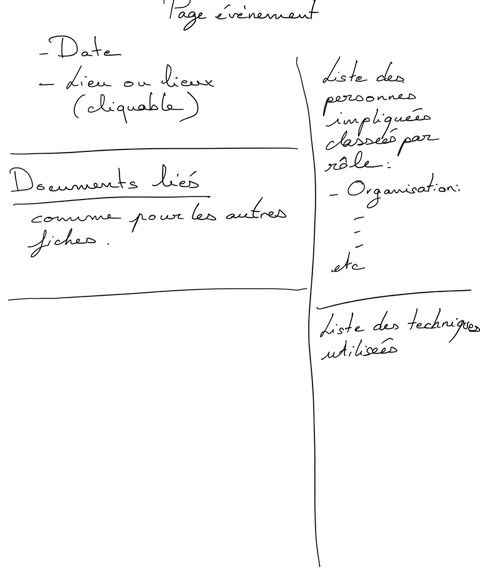 Page événement
- Date
- Lieu ou lieux
(cliquable)
Documents liés
comme pour les autres
fiches.
Liste des
personnes
impliquées
classées par
rôle :
- Organisation:
-
-
-
etc
Liste des techniques
utilisées